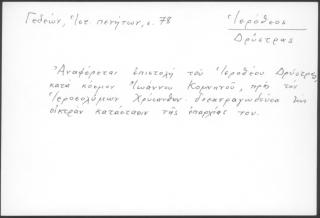 Γεδεών, Ἱστ. πενήτων, σ. 78
Ἱερόθεος
Δρύστρας
Ἀναφέρεται ἐπιστολή τοῦ Ἱεροθέου Δρύστρας,
κατά κόσμον Ἰωάννου Κομνηνοῦ, πρός τόν
Ἱεροσολύμων Χρύσανθον ἐκτραγωδοῦσα τήν
οἰκτράν κατάστασιν τῆς ἐπαρχίας του.